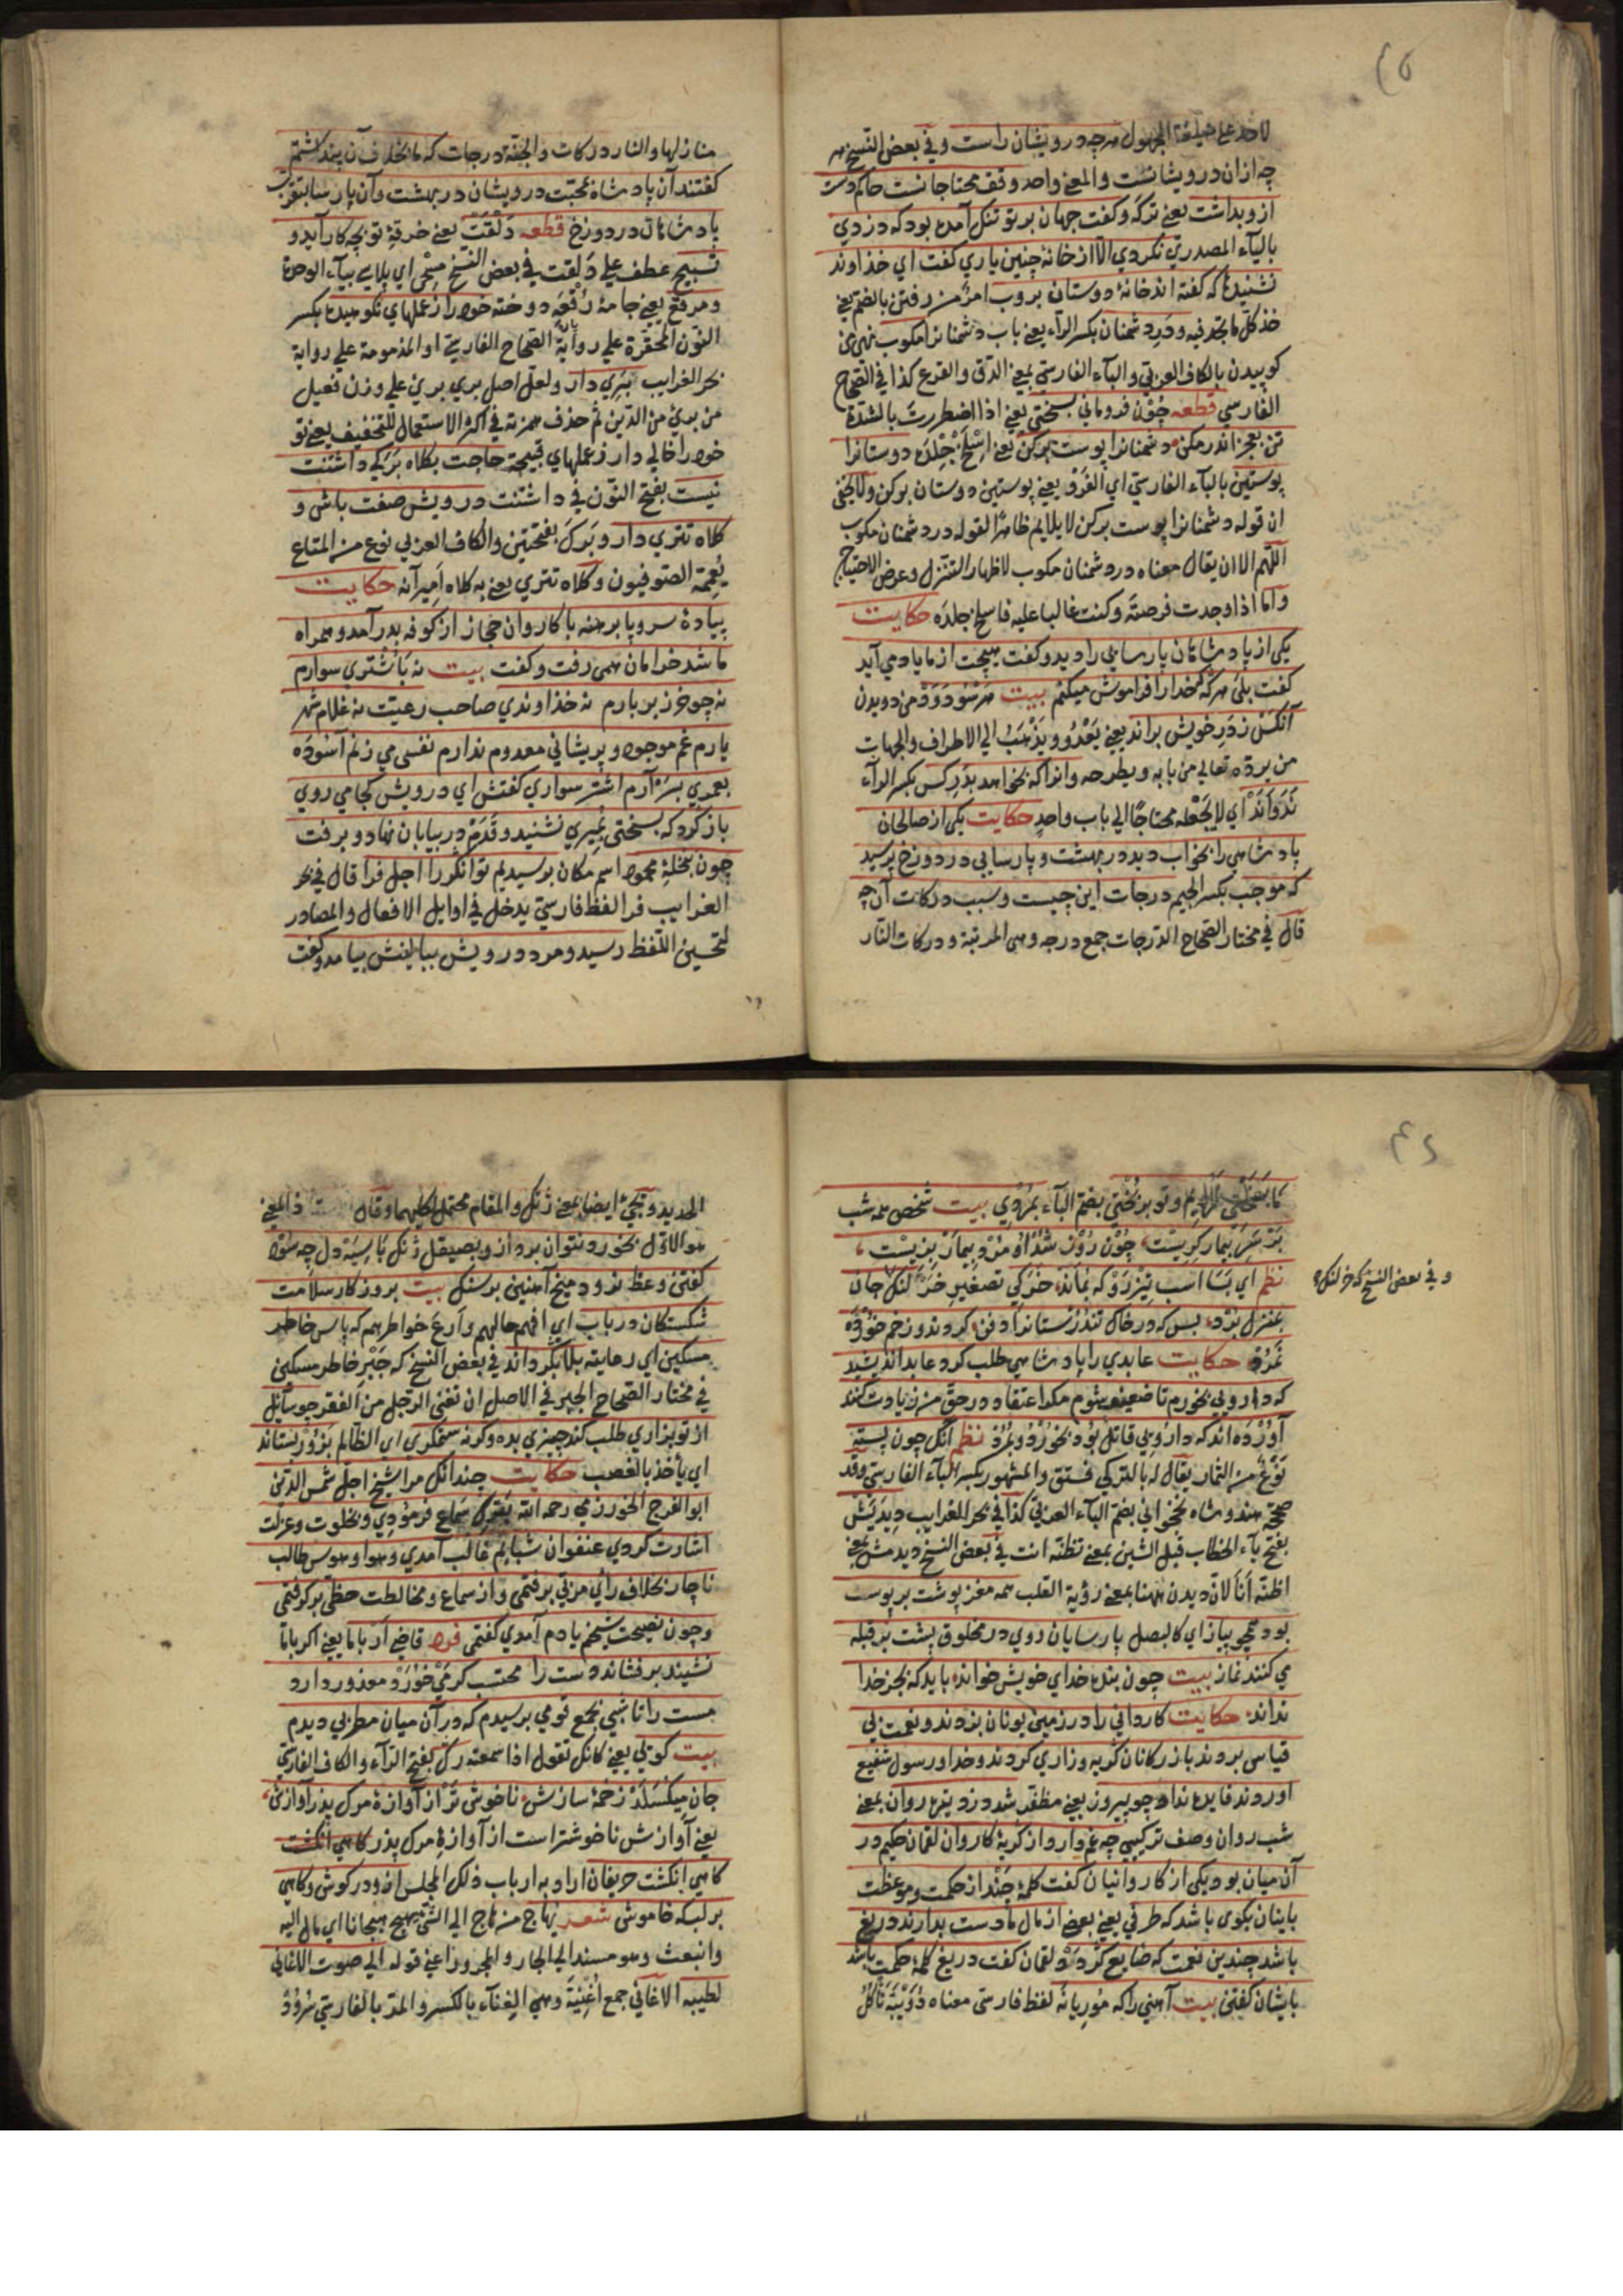 لاحد على صيغة المجهول هرچه درويشان راست وفي بعض النسخ هر
چه ازان درويشانست والمعنى واحد وقف محتاجانست حاكم دست
ازو بداشت يعني تركه وكفت جهان بر تو تنك آمده بود كه دزدي
بالياء المصدري نكردي الا از خانه چنين ياري كفت اي خداوند
نشنيدۀ كه كفته اند خانۀ دوستان بروب امر من رفتن بالضم يعني
خذ كل ما تجد فيه ودر دشمنان بكسر الراء يعني باب دشمنانرا مكوب نهي من
كوبيدن بالكاف العربي والباء الفارسي بمعنى الدق والقرع كذا في الصحاح
الفارسي قطعه چون فروماني بسختي يعني اذا اضطررت بالشدة
تن بعجز اندر مكن دشمنانرا پوست بركن يعني اسلخ جلد دوستانرا
پوستين بالباء الفارسي اي الفرو يعني پوستين دوستان بركن ولا يخفى
ان قوله دشمنانرا پوست بركن لا يلايم ظاهرا لقوله در دشمنان مكوب
اللهم الا ان يقال معناه در دشمنان مكوب لاظهار التنزل وعرض الاحتياج
واما اذا وجدت فرصة وكنت غالبا عليه فاسلخ جلده حكايت
يكي از پادشاهان پارسايي را ديد وكفت هيچت از ما ياد مي آيد
كفت بلى هركه كه خدا را فراموش ميكنم بيت هر سو دود من دويدن
آنكش ز در خويش براند يعني يعدو ويذهب الى الاطراف والجهات
من يرده تعالى من بابه ويطرحه وانرا كه بخواند بدر كس بكسر الراء
ندواند اي لا يجعله محتاجا الى باب واحد حكايت يكي از صالحان
پادشاهي را بخواب ديد در بهشت وپارسايي در دوزخ پرسيد
كه موجب بكسر الجيم درجات اين چيست وسبب دركات آن چه
قال في مختار الصحاح الدرجات جمع درجه وهي المرتبة ودركات النار
منازلها والنار دركات والجنة درجات كه ما بخلاف آن پنداشتيم
كفتند آن پادشاه بمحبت درويشان در بهشت وآن پارسا بتقرب
پادشاهان در دوزخ قطعه دلقت يعني خرقۀ تو بچه كار آيد و
تسبيح عطف على دلقت في بعض النسخ مسحي اي پلاسي بياء الوحدة
ومرقع يعني جامۀ رقعه دوخته خود را ز عملهاي نكوهيده بكسر
النون المحقرة على رواية الصحاح الفارسي او المذمومة على رواية
بحر الغرايب بري دار ولعل اصل بري بريئ على وزن فعيل
من برئ من الدين ثم حذف همزته في اكثر الاستعمال للتخفيف يعني تو
خود را خالي دار ز عملهاي قبيحة حاجت بكلاه بركي داشتنت
نيست بفتح النون في داشتنت درويش صفت باش و
كلاه تتري دار وبرك بفتحتين والكاف العربي نوع من المتاع
يعممه الصوفيون وكلاه تتري يعني به كلاه اميرانه حكايت
پيادۀ سر وپا برهنه با كاروان حجاز از كوفه بدر آمد وهمراه
ما شد خرامان همي رفت وكفت بيت نه باشتري سوارم
نه چو خر زير بارم نه خداوندي صاحب رعيت نه غلام شهر
يارم غم موجود وپريشاني معدوم ندارم نفسي مي زنم آسوده
بعمري بسر آرم اشتر سواري كفتش اي درويش كجا مي روي
باز كرد كه بسختي بميري نشنيد وقدم در بيابان نهاد وبرفت
چون بنخلۀ محمود اسم مكان برسيديم توانكر را اجل فرا قال في بحر
الغرايب فرا لفظ فارسي يدخل في اوايل الافعال والمصادر
لتحسين اللفظ رسيد ومرد درويش ببالينش بيامد وكفت
ما بسختي نمرديم وتو بر بختي بضم الباء بمردي بيت شخصى همه شب
بر سر بيمار كريست چون روز شد او مرد وبيمار بزيست
نظم اي بسا اسب تيز رو كه بماند خركي تصغير خر لنك جان
بمنزل برد بس كه در خاك تندرستانرا دفن كردند وزخم خورده
نمرد حكايت عابدي را پادشاهي طلب كرد عابد انديشيد
كه داروبي بخورم تا ضعيف شوم مكر اعتقاد در حق من زيادت كند
آورده اند كه داروبي قاتل بود بخورد وبمرد نظم آنك چون پسته
نوع من الثمار يقال له بالتركي فستق والمشهور بكسر الباء الفارسي وقد
صححه هندوشاه نخجواني بضم الباء العربي كذا في بحر الغرايب ديديش
بفتح ياء الخطاب قبل الشين بمعنى تظنه انت في بعض النسخ ديدمش بمعنى
اظنه انا لان ديدن ههنا بمعنى رؤية القلب همه مغز پوشت بر پوست
بود همچو پياز اي كالبصل پارسايان روي در مخلوق پشت بر قبله
مي كنند نماز بيت چون بنده خداي خويش خواند بايد كه بجز خدا
نداند حكايت كارواني را در زمين يونان بزدند ونعمت بي
قياس بردند بازركانان كريه وزاري كردند وخدا ورسول شفيع
آوردند فايده نداد چو پيروز يعني مظفر شد دزد تيره روان بمعنى
شب روان وصف تركيبي چه غم دارد از كريۀ كاروان لقمان حكيم در
آن ميان بود يكي از كاروانيان كفت كلمۀ چند از حكمت وموعظت
باينان بكوى باشد كه طرفي يعني بعضي از مال ما دست بدارند دريغ
باشد چندين نعمت كه ضايع كردد لقمان كفت دريغ كلمۀ حكمت باشد
بايشان كفتن بيت آهني را كه موريانه لفظ فارسي معناه دويبة تأكل
وفي بعض النسخ كه خر لنك
الحديد ويجئ ايضا بمعنى ژنك والمقام محتمل لكليهما وقال فالمعنى
هو الاول بخورد نتوان برد ازو بصيقل ژنك با سيه دل چه سود
كفتن وعظ نرود ميخ آهنين بر سنك بيت بروزكار سلامت
شكستكان درياب اي افهم حالهم وارع خواطرهم كه پاس خاطر
مسكين اي رعايته بلا بكرداند في بعض النسخ كه جبر خاطر مسكين
في مختار الصحاح الجبر في الاصل ان تغني الرجل من الفقر چو سائل
از تو بزاري طلب كند چيزي بده وكرنه ستمكري اي الظالم بزور بستاند
اي يأخذ بالغصب حكايت چندانك مرا شيخ اجل شمس الدين
ابو الفرج الخوزرمي رحمه الله بترك سماع فرمودي وبخلوت وعزلت
اشارت كردي عنفوان شبابم غالب آمدي وهوا وهوس طالب
ناچار بخلاف رأي مربي برفتمي واز سماع ومخالطت حظي بركرفتمي
وچون نصيحت شيخم ياد م آمدي كفتمي فرد قاضي ار با ما يعني اكر با ما
نشيند برفشاند دست را محتسب كر مي خورد معذور دارد
مست را تا شبي بجمع قومي برسيدم كه در آن ميان مطربي ديدم
بيت كوبي يعني كانك تقول اذا سمعته رك بفتح الراء والكاف الفارسي
جان ميكسلد زخمۀ سازش ناخوش تر از آوازۀ مرك پدر آوازش
يعني آوازش ناخوشتر است از آوازۀ مرك پدر كاهي انكشت
كاهي انكشت حريفان اراد به ارباب ذلك المجلس ازو در كوش وكاهي
بر لب كه خاموش شعر نهاج من هاج الى الشئ يهيج هيجانا اي مال اليه
وانبعث وهو مسند الى الجار والمجرور اعني قوله الى صوت الاغاني
لطيبه الاغاني جمع اغنية وهي الغناء بالكسر والمد بالفارسي سرود